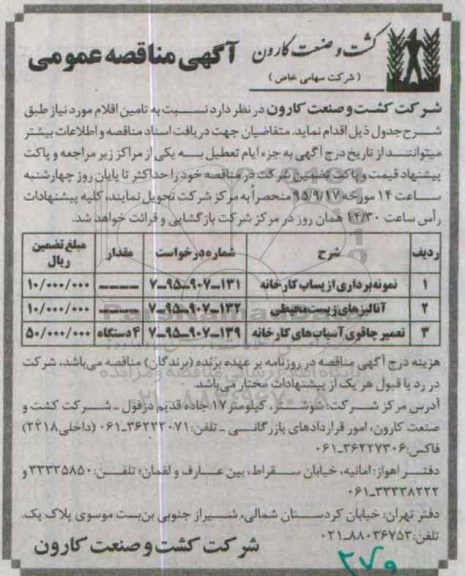 کشت و صنعت کارون
(شرکت سهامی خاص)
آگهی مناقصه عمومی
شرکت کشت و صنعت کارون در نظر دارد نسبت به تامین اقلام مورد نیاز طبق
شرح جدول ذیل اقدام نماید. متقاضیان جهت دریافت اسناد مناقصه و اطلاعات بیشتر
میتوانند از تاریخ درج آگهی به جزء ایام تعطیل به یکی از مراکز زیر مراجعه و پاکت
پیشنهاد قیمت و پاکت تضمین شرکت در مناقصه خود را حداکثر تا پایان روز چهارشنبه
ساعت ۱۴ مورخه ۹۵/۹/۱۷ منحصراً به مرکز شرکت تحویل نمایند، کلیه پیشنهادات
رأس ساعت ۱۴/۳۰ همان روز در مرکز شرکت بازگشایی و قرائت خواهد شد.
ردیف شرح شماره درخواست مقدار مبلغ تضمین ریال
۱ نمونه برداری از پساب کارخانه ۱۳۱-۹۰۷-۹۵-۷ ---- ۱۰/۰۰۰/۰۰۰
۲ آنالیزهای زیست محیطی ۱۳۲-۹۰۷-۹۵-۷ ---- ۱۰/۰۰۰/۰۰۰
۳ تعمیر چاقوی آسیاب های کارخانه ۱۳۹-۹۰۷-۹۵-۷ ۴ دستگاه ۵۰/۰۰۰/۰۰۰
هزینه درج آگهی مناقصه در روزنامه بر عهده برنده (برندگان) مناقصه می‌باشد، شرکت
در رد یا قبول هر یک از پیشنهادات مختار می‌باشد.
آدرس مرکز شرکت: شوشتر، کیلومتر ۱۷ جاده قدیم دزفول - شرکت کشت و
صنعت کارون، امور قراردادهای بازرگانی - تلفن: ۳۶۲۲۲۰۷۱-۰۶۱ (داخلی ۲۴۱۸)
فاکس: ۳۶۲۲۷۳۰۶-۰۶۱
دفتر اهواز: امانیه، خیابان سقراط، بین عارف و لقمان؛ تلفن: ۳۳۳۳۵۸۵۰ و
۳۳۳۳۸۲۲۲-۰۶۱
دفتر تهران: خیابان کردستان شمالی، شیراز جنوبی بن‌بست موسوی پلاک یک.
تلفن: ۸۸۰۳۶۷۵۳-۰۲۱
شرکت کشت و صنعت کارون